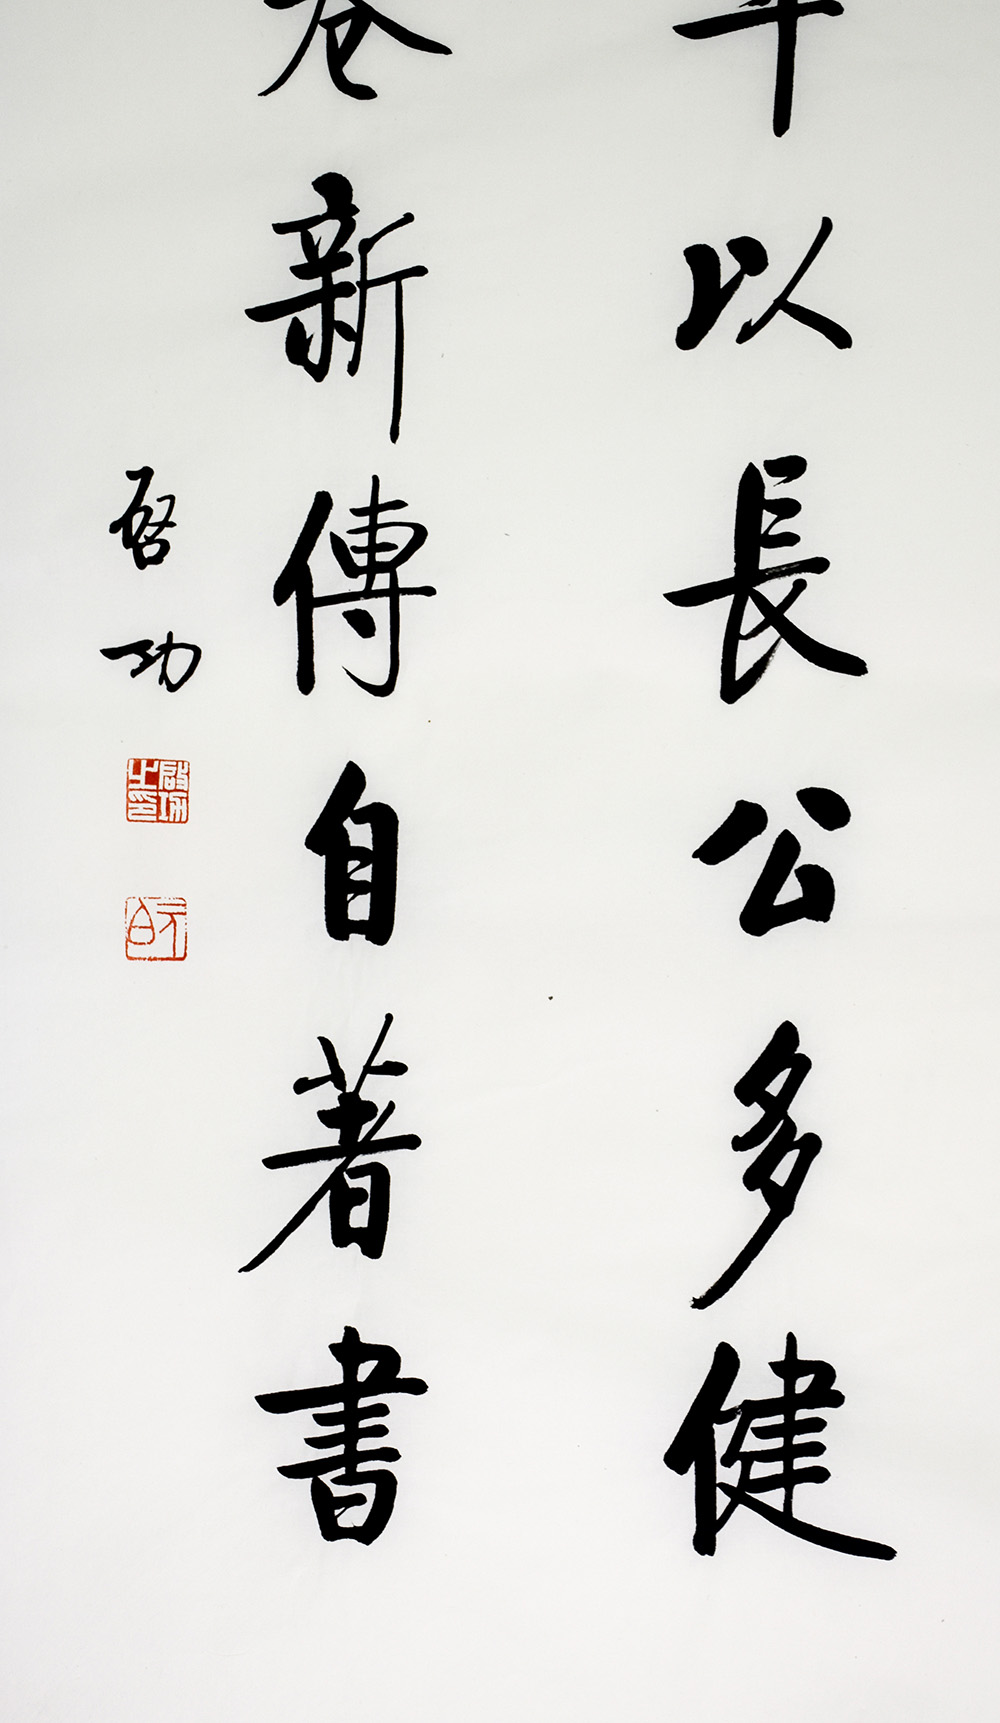 年以長公多健
卷新傳自著書
啓功
啟功之印
元白